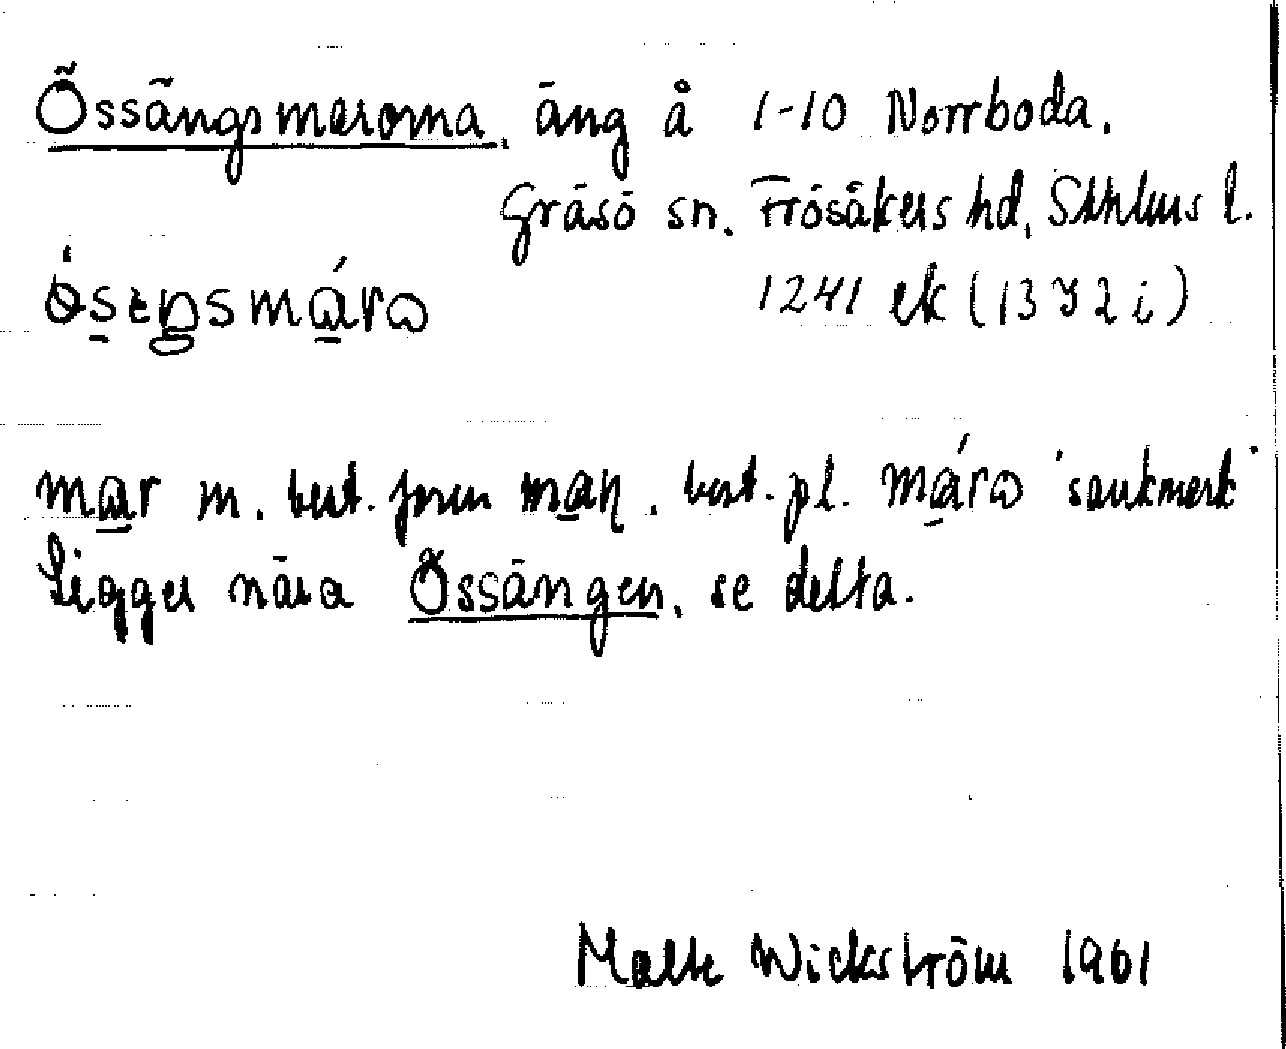 Össängsmarorna, äng å 1-10 Norrboda.
Gräsö sn. Frösåkers hd, Sthlms l.
ósɛŋsmárɷ 1241 ek (13 I 2 i)
mar m. best. form man. best. pl. márɷ 'sankmark'
Ligger nära Össängen, se detta.
Malte Wickström 1961